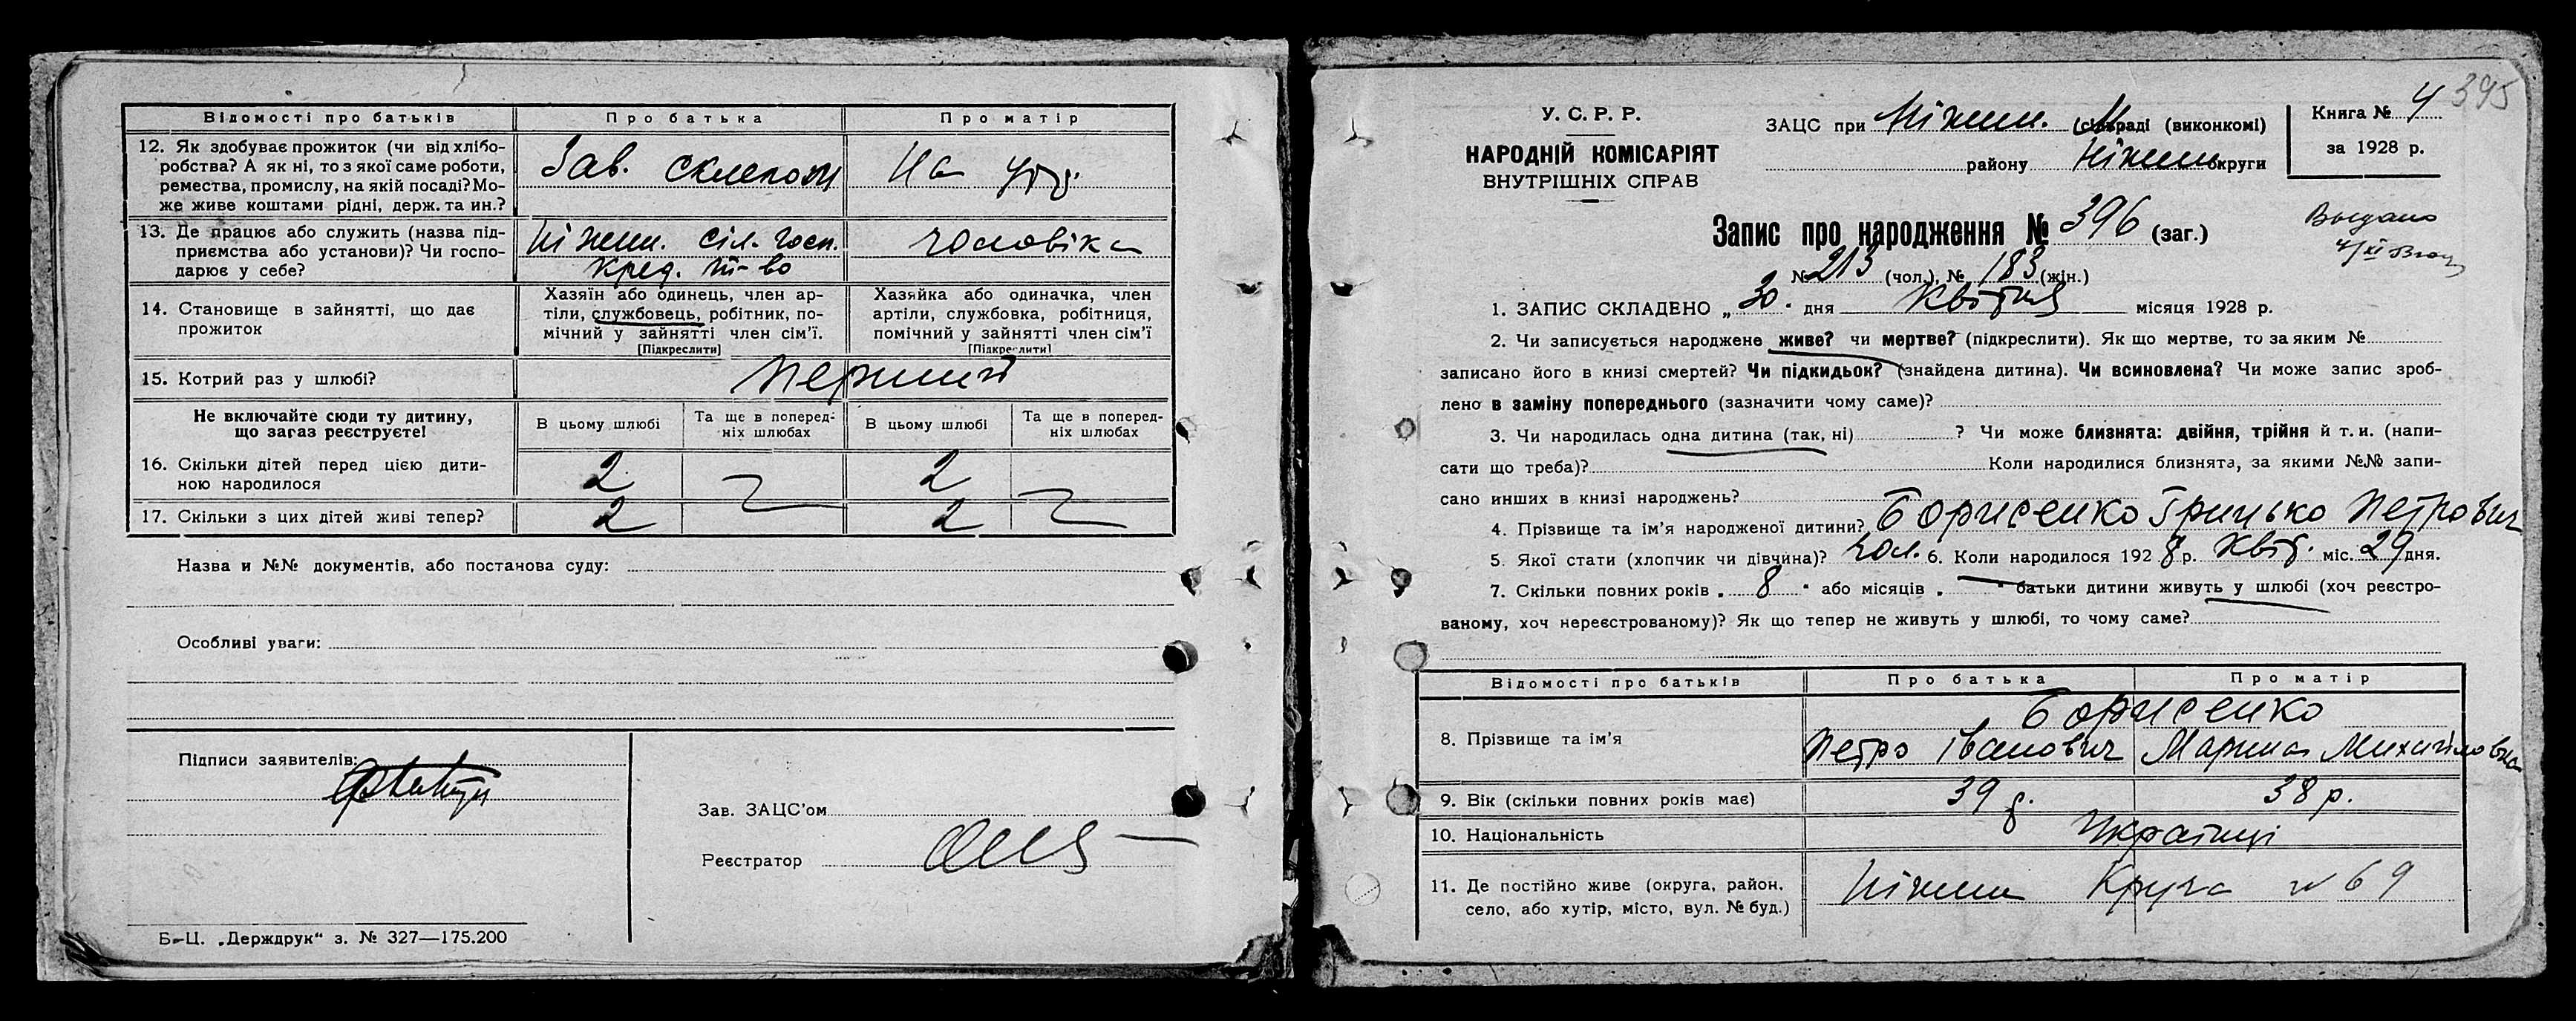 Відомості про батьків
Про батька
Про матір
12. Як здобуває прожиток (чи від хлібо-
робства? А як ні, то з якої саме роботи,
ремества, промислу, на якій посаді? Мо-
же живе коштами рідні, держ. та ин.?
Зав. склепом
На утр.
13. Де працює або служить (назва під-
приємства або установи)? Чи госпо-
дарює у себе?
Ніжин. сіл. госп.
кред. т-во
чоловіка
14. Становище в зайнятті, що дає
прожиток
Хазяїн або одинець, член ар-
тіли, службовець, робітник, по-
мічний у зайнятті член сім'ї.
[Підкреслити]
Хазяйка або одиначка, член
артіли, службовка, робітниця,
помічний у зайнятті член сім'ї
[Підкреслити]
15. Котрий раз у шлюбі?
перший
Не включайте сюди ту дитину,
що загаз реєструєте!
В цьому шлюбі
Та ще в поперед-
ніх шлюбах
В цьому шлюбі
Та ще в поперед-
ніх шлюбах
16. Скільки дітей перед цією дити-
ною народилося
2
2
17. Скільки з цих дітей живі тепер?
2
2
Назва и №№ документів, або постанова суду:
Особливі уваги:
Підписи заявителів:
Зав. ЗАЦС'ом
Реєстратор
Б-Ц. „Держдрук“ з. № 327—175.200
395
У. С. Р. Р.
НАРОДНІЙ КОМІСАРІЯТ
ВНУТРІШНІХ СПРАВ
ЗАЦС при Ніжин. М (сільраді (виконкомі)
району Ніжин округи
Книга № 4
за 1928 р.
Запис про народження № 396 (заг.)
№ 213 (чол.), № 183 (жін.)
Выдано
4/XI
1. ЗАПИС СКЛАДЕНО „30. дня Квітня місяця 1928 р.
2. Чи записується народжене живе? чи мертве? (підкреслити). Як що мертве, то за яким №
записано його в книзі смертей? Чи підкидьок? (знайдена дитина). Чи всиновлена? Чи може запис зроб-
лено в заміну попереднього (зазначити чому саме)?
3. Чи народилась одна дитина (так, ні) ? Чи може близнята: двійня, трійня й т. и. (напи-
сати що треба)? Коли народилися близнята, за якими №№ запи-
сано инших в книзі народжень?
4. Прізвище та ім'я народженої дитини? Борисенко Гринько Петрович
5. Якої стати (хлопчик чи дівчина)? чол. 6. Коли народилося 1928 р. Квіт. міс. 29 дня.
7. Скільки повних років „ 8 “ або місяців „ “ батьки дитини живуть у шлюбі (хоч реєстро-
ваному, хоч нереєстрованому)? Як що тепер не живуть у шлюбі, то чому саме?
Відомості про батьків
Про батька
Про матір
8. Прізвище та ім'я
Борисенко
Петро Іванович
Марина Михайловна
9. Вік (скільки повних років має)
39 р.
38 р.
10. Національність
Українці
11. Де постійно живе (округа, район,
село, або хутір, місто, вул. № буд.)
Ніжин Круча № 69